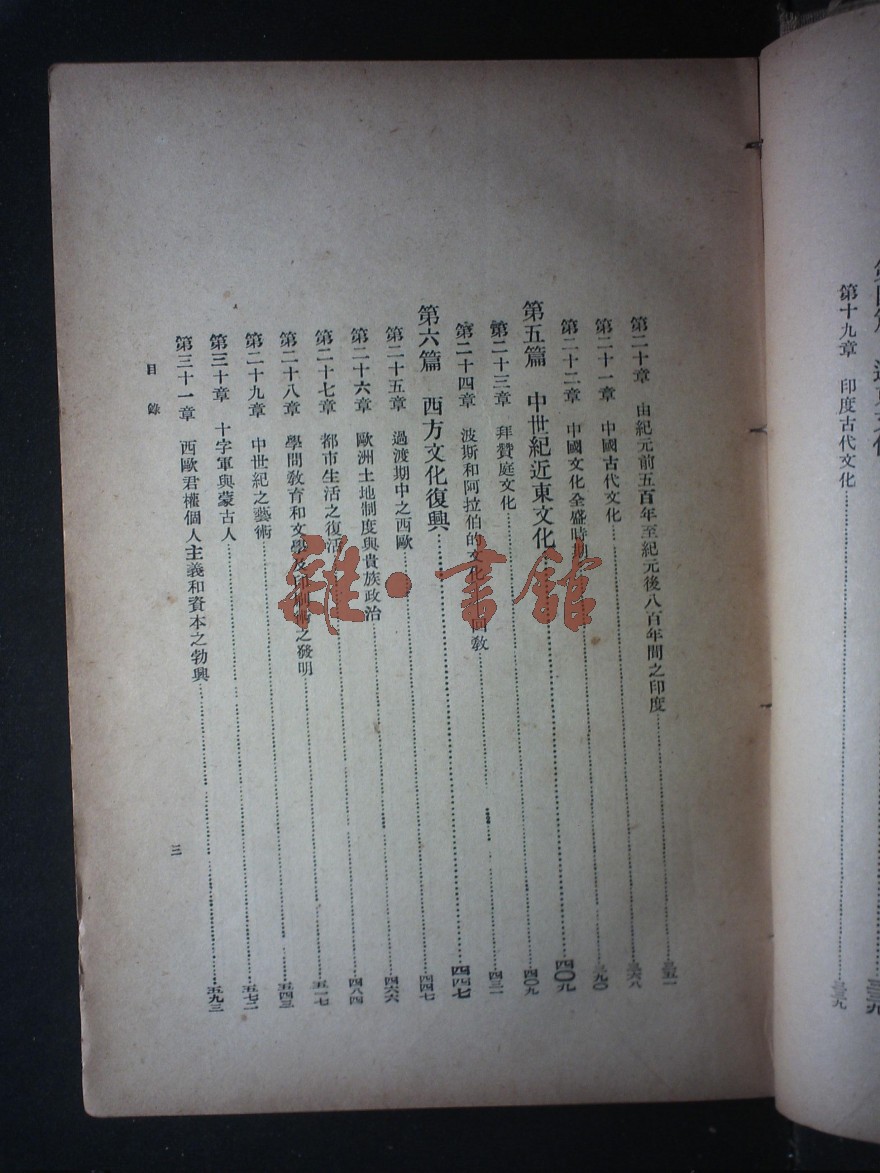 第十九章 印度古代文化……三三九
第二十章 由紀元前五百年至紀元後八百年間之印度……三五一
第二十一章 中國古代文化……三六八
第二十二章 中國文化全盛時期……三九〇
第五篇 中世紀近東文化……四〇九
第二十三章 拜贊庭文化……四〇九
第二十四章 波斯和阿拉伯的文化 回教……四三一
第六篇 西方文化復興……四四七
第二十五章 過渡期中之西歐……四四七
第二十六章 歐洲土地制度與貴族政治……四六六
第二十七章 都市生活之復活……四八四
第二十八章 學問教育和文學及印刷術之發明……五一七
第二十九章 中世紀之藝術……五四三
第三十章 十字軍與蒙古人……五七二
第三十一章 西歐君權個人主義和資本之勃興……五九三
目錄
三
雜·書館